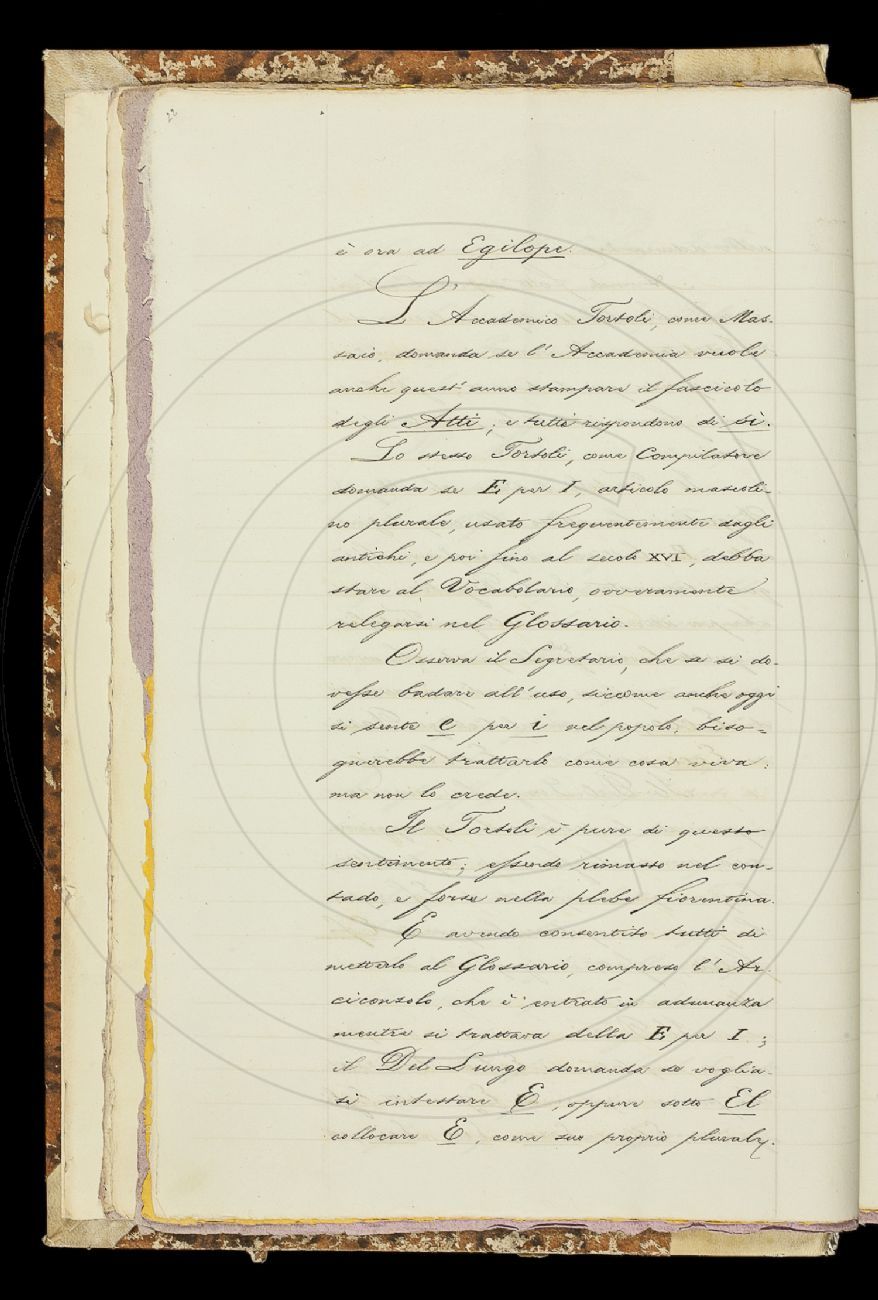 22
è ora ad Egilope.
L'Accademico Tortoli, come Mas-
saio, domanda se l'Accademia vuole
anche quest'anno stampare il fascicolo
degli Atti; e tutti rispondono di sì.
Lo stesso Tortoli, come Compilatore
domanda se E per I, articolo mascoli-
no plurale, usato frequentemente dagli
antichi, e poi fino al secolo XVI, debba
stare al Vocabolario, ovveramente
relegarsi nel Glossario.
Osserva il Segretario, che se si do-
vesse badare all'uso, siccome anche oggi
si sente e per i nel popolo, biso-
gnerebbe trattarlo come cosa viva:
ma non lo crede.
Il Tortoli è pure di questo
sentimento; essendo rimasso nel con-
tado, e forse nella plebe fiorentina.
E avendo consentito tutti di
metterlo al Glossario, compreso l'Ar-
ciconsolo, che è entrato in adunanza
mentre si trattava della E per I;
il Del Lungo domanda se voglia-
si intestare E, oppure sotto El
collocare E, come suo proprio plurale.